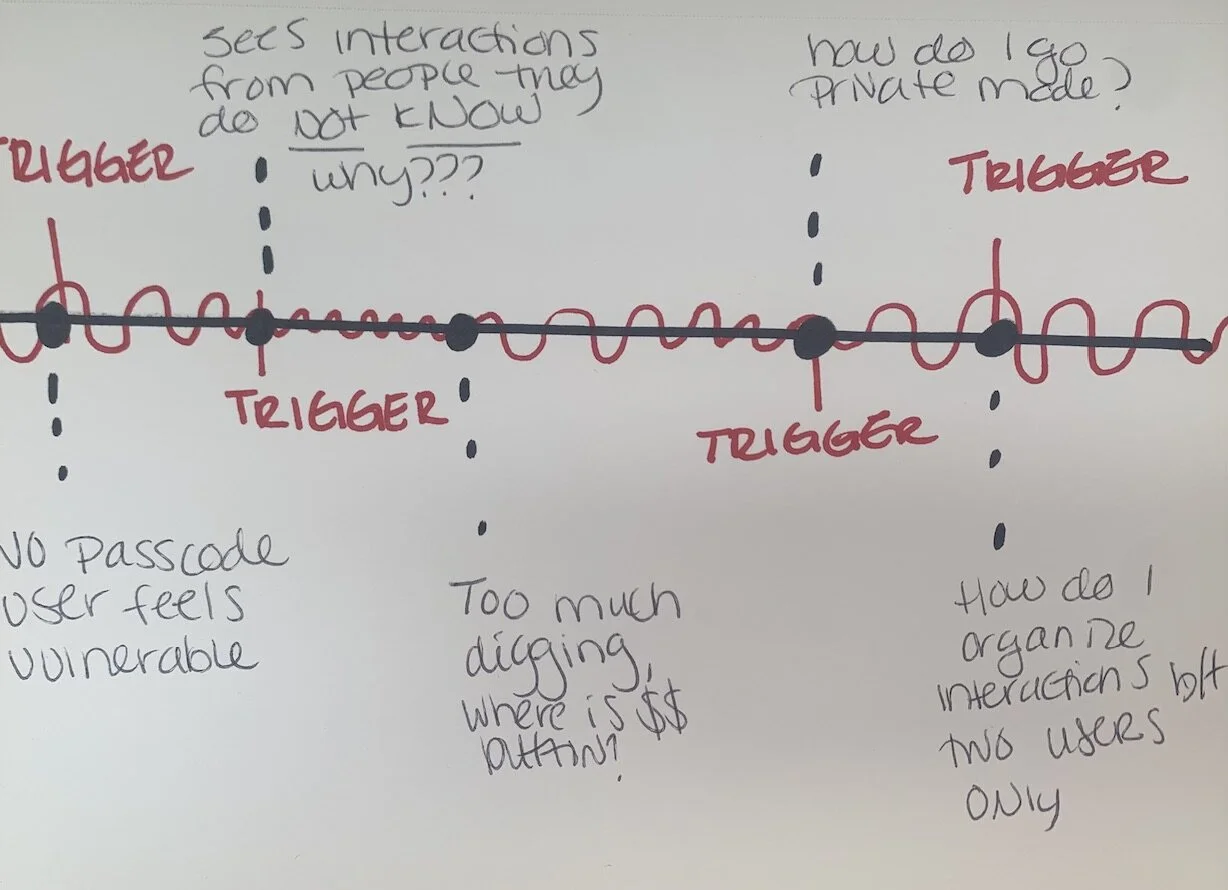 sees interactions
from people they
do NOT KNOW
why???
how do I go
private mode?
TRIGGER
TRIGGER
TRIGGER
TRIGGER
NO Passcode
user feels
vulnerable
Too much
digging,
where is $$
button?
How do I
organize
interactions b/t
two users
ONLY